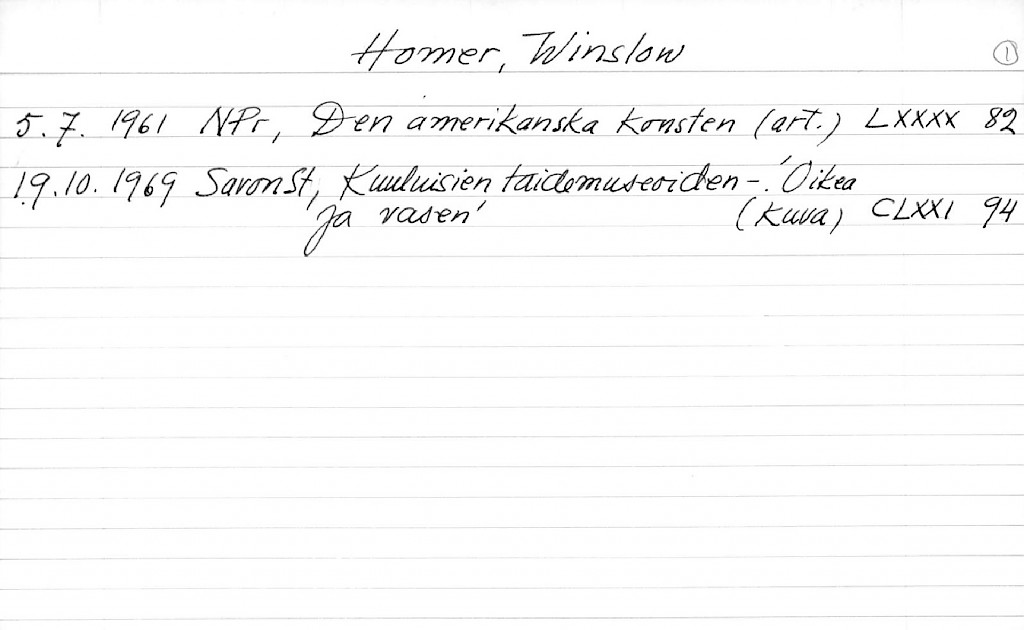 Homer, Winslow ①
5.7. 1961 NPr, Den amerikanska konsten (art.) LXXXX 82
19.10. 1969 SavonSt, Kuuluisien taidemuseoiden -. 'Oikea
ja vasen' (Kuva) CLXXI 94